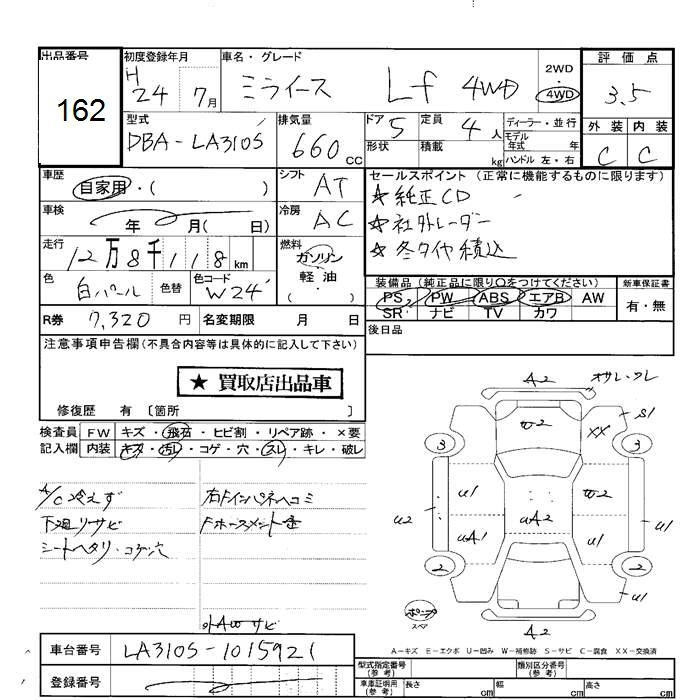 出品番号
162
初度登録年月
H
24 7月
車名・グレード
ミライース Lf 4WD
2WD
・
4WD
評価点
3.5
外装 内装
C C
型式
DBA-LA310S
排気量
660 CC
ドア
5
形状
定員
4 人
積載
kg
ディーラー・並行
モデル
年式 年
ハンドル 左・右
車歴
自家用・( )
シフト
AT
セールスポイント(正常に機能するものに限ります)
☆純正CD
☆社外レーダー
☆冬タイヤ積込
車検
年 月( 日)
冷房
AC
走行
12万8千118km
燃料
ガソリン
・
軽油
( )
色
白パール
色替
色コード
W24
装備品(純正品に限り○をつけてください)
PS PW ABS エアB AW
SR ナビ TV カワ
新車保証書
有・無
R券 7,320 円
名変期限 月 日
後日品
注意事項申告欄(不具合内容等は具体的に記入して下さい)
★買取店出品車
修復歴 有〔箇所 〕
検査員
記入欄
FW キズ・飛石・ヒビ割・リペア跡・×要
内装 キズ・汚れ・コゲ・穴・スレ・キレ・破レ
A/C冷えず
下廻りサビ
シートヘタリ・コゲ穴
右Fインパネヘコミ
A2
S1
U2
XX
3
3
U1
W2
U2
UA2
UA1
U1
U1
2
2
U1
A2
スペア
A-キズ E-エクボ U-凹み W-補修跡 S-サビ C-腐食 XX-交換済
車台番号
LA310S-1015921
登録番号
型式指定番号
(参考)
類別区分番号
(参考)
車庫証明用
(参考)
長さ cm
幅 cm
高さ cm